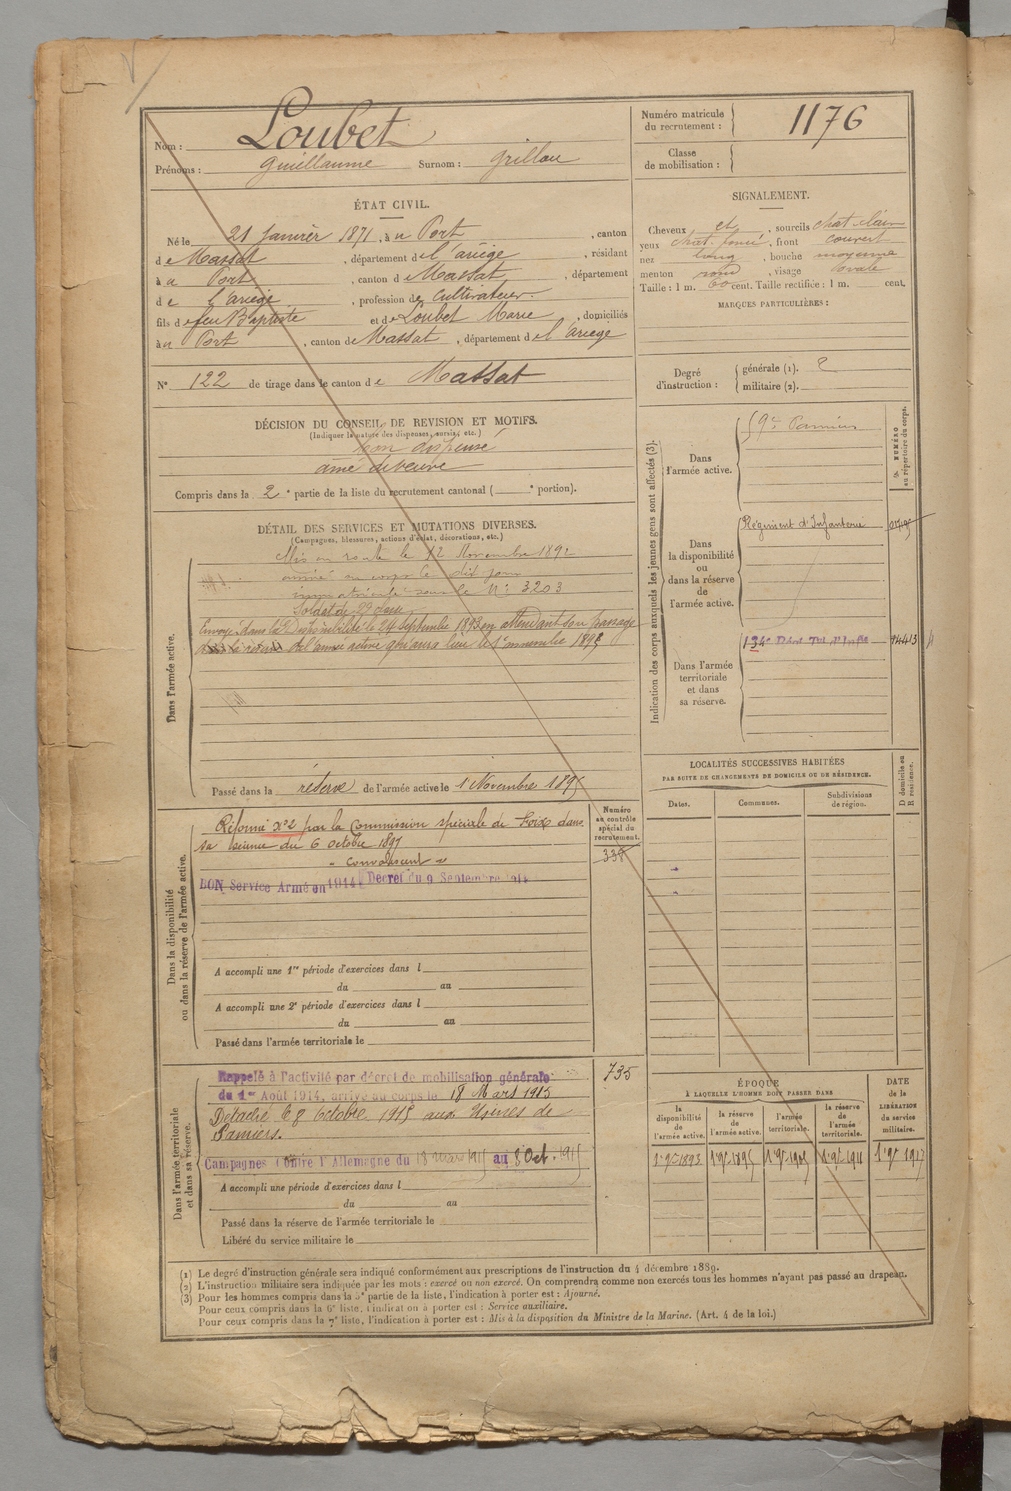 Nom : Loubet
Prénoms : Guillaume Surnom : Grillou
Numéro matricule du recrutement : 1176
Classe de mobilisation :
ÉTAT CIVIL.
Né le 21 Janvier 1871, à u Port, canton
de Massat, département de l'ariège, résidant
à u Port, canton de Massat, département
de l'ariège, profession de Cultivateur.
fils de feu Baptiste et de Loubet Marie, domiciliés
à u Port, canton de Massat, département de l'ariège
N° 122 de tirage dans le canton de Massat
SIGNALEMENT.
Cheveux et, sourcils chat. clair
yeux chat. foncé, front couvert
nez long, bouche moyenne
menton rond, visage ovale
Taille : 1 m. 60 cent. Taille rectifiée : 1 m. cent.
MARQUES PARTICULIÈRES :
Degré d'instruction : générale (1). 2
militaire (2).
DÉCISION DU CONSEIL DE REVISION ET MOTIFS.
(Indiquer la nature des dispenses, sursis, etc.)
dispensé
ainé de veuve
Compris dans la 2e partie de la liste du recrutement cantonal ( e portion).
DÉTAIL DES SERVICES ET MUTATIONS DIVERSES.
(Campagnes, blessures, actions d'éclat, décorations, etc.)
Dans l'armée active.
Mis en route le 12 Novembre 1892
arrivé au corps le dit jour
immatriculé sous le N° 3203
Soldat de 2e classe
Envoyé dans la Disponibilité le 24 Septembre 1893 en attendant son passage
dans la réserve de l'armée active qui aura lieu le 1er novembre 1895
Passé dans la réserve de l'armée active le 1 Novembre 1895
Indication des corps auxquels les jeunes gens sont affectés (3).
NUMÉRO au répertoire du corps.
Dans l'armée active.
59e Pamiers
Dans la disponibilité ou dans la réserve de l'armée active.
Régiment d'Infanterie
Dans l'armée territoriale et dans sa réserve.
134e Régt Ter. d'Inf.ie 14413
LOCALITÉS SUCCESSIVES HABITÉES
PAR SUITE DE CHANGEMENTS DE DOMICILE OU DE RÉSIDENCE.
Dates. Communes. Subdivisions de région. D domicile ou R résidence.
Dans la disponibilité ou dans la réserve de l'armée active.
Numéro au contrôle spécial du recrutement.
338
Réformé N°2 par la Commission spéciale de Foix dans
sa séance du 6 octobre 1897
BON Service Armé en 1914 Décret du 9 Septembre 1914
A accompli une 1re période d'exercices dans l
du au
A accompli une 2e période d'exercices dans l
du au
Passé dans l'armée territoriale le
Dans l'armée territoriale et dans sa réserve.
735
Rappelé à l'activité par décret de mobilisation générale
du 1er Août 1914, arrivé au corps le 18 Mars 1915
Détaché le 8 Octobre 1915 aux Usines de
Pamiers.
Campagnes Contre l'Allemagne du 18 mars 1915 au 8 Oct. 1915
A accompli une période d'exercices dans l
du au
Passé dans la réserve de l'armée territoriale le
Libéré du service militaire le
ÉPOQUE
À LAQUELLE L'HOMME DOIT PASSER DANS
la disponibilité de l'armée active. la réserve de l'armée active. l'armée territoriale. la réserve de l'armée territoriale.
DATE de la LIBÉRATION du service militaire.
1 9bre 1893 1 9bre 1895 1 9bre 1905 1 9bre 1911 1 9bre 1917
(1) Le degré d'instruction générale sera indiqué conformément aux prescriptions de l'instruction du 4 décembre 1889.
(2) L'instruction militaire sera indiquée par les mots : exercé ou non exercé. On comprendra comme non exercés tous les hommes n'ayant pas passé au drapeau.
(3) Pour les hommes compris dans la 5e partie de la liste, l'indication à porter est : Ajourné.
Pour ceux compris dans la 6e liste, l'indication à porter est : Service auxiliaire.
Pour ceux compris dans la 7e liste, l'indication à porter est : Mis à la disposition du Ministre de la Marine. (Art. 4 de la loi.)